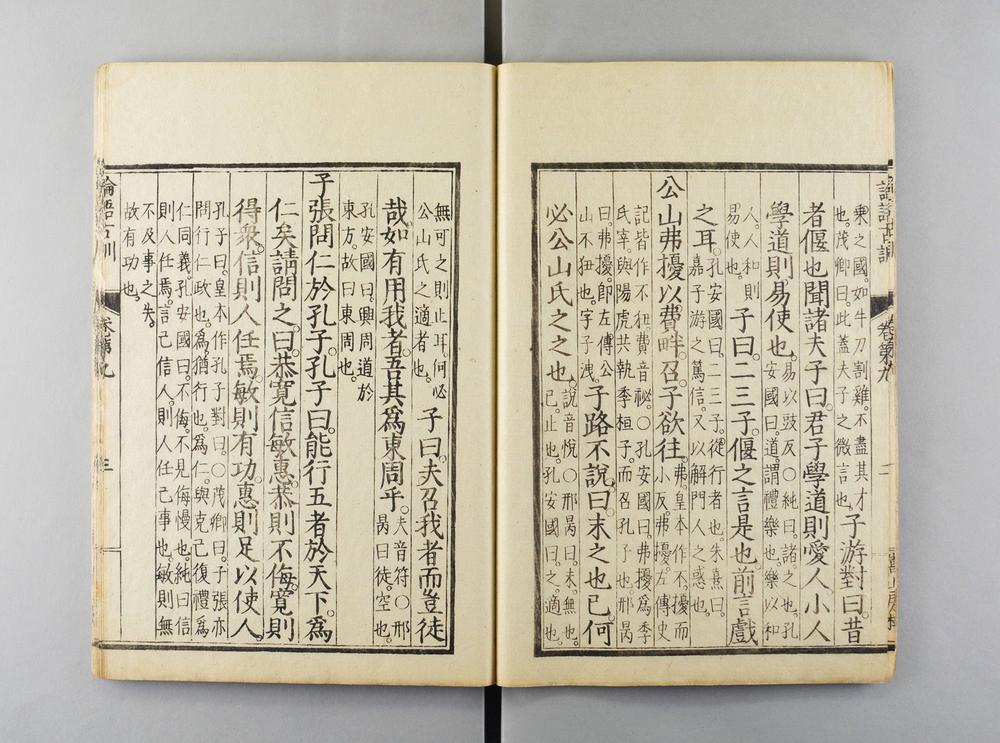 論語古訓
卷第九
乘之國。如牛刀割雞。不盡其才
也。茂卿曰。此蓋夫子之微言也。
子游對曰。昔
者偃也聞諸夫子曰。君子學道則愛人小人
學道則易使也。
易以豉反〇純曰。諸。之也。孔
安國曰。道。謂禮樂也。樂以和
人。人和則
易使也。
子曰。二三子。偃之言是也。前言戲
之耳。
孔安國曰。二三子。從行者也。朱熹曰。
嘉子游之篤信。又以解門人之惑也。
公山弗擾以費畔。召。子欲往。
弗。皇本作不。擾而
小反。弗擾。左傳史
記皆作不狃。費音祕。〇孔安國曰。弗擾爲季
氏宰。與陽虎共執季桓子。而召孔子也。邢昺
曰。弗擾。即左傳公
山不狃也。字子洩。
子路不說。曰。末之也已。何
必公山氏之之也。
說音悅〇邢昺曰。末。無也。
已。止也。孔安國曰。之。適也。
無可之則止耳。何必
公山氏之適者也。
子曰。夫召我者而豈徒
哉。如有用我者。吾其爲東周乎。
夫音符〇邢
昺曰。徒。空也。
孔安國曰。興周道於
東方。故曰東周也。
子張問仁於孔子。孔子曰。能行五者於天下。爲
仁矣。請問之。曰。恭寬信敏惠。恭則不侮。寬則
得衆。信則人任焉。敏則有功。惠則足以使人。
孔子曰。皇本作孔子對曰。〇茂卿曰。子張亦
問行仁政也。爲。猶行也。爲仁。與克己復禮爲
仁同義。孔安國曰。不侮。不見侮慢也。純曰信
則人任焉。言己信人。則人任己事也。敏則無
不及事之失。
故有功也。
論語古訓
卷第九
三